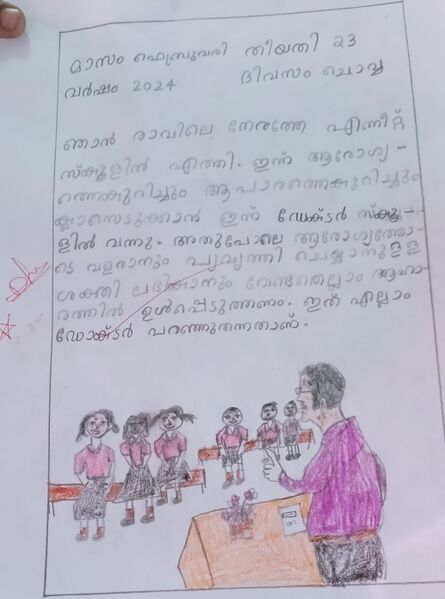 മാസം ഫെബ്രുവരി തീയതി 23
വർഷം 2024 ദിവസം ചൊവ്വ
ഞാൻ രാവിലെ നേരത്തേ എന്നീറ്റ്
സ്കൂളിൽ എത്തി. ഇന്ന് ആരോഗ്യ -
ത്തെകുരിച്ചും ആഹാരത്തെകുറിച്ചും
ക്ലാസെടുക്കാൻ ഇന്ന് ഡോക്ടർ സ്കൂ -
ളിൽ വന്നു. അതുപോലെ ആരോഗ്യത്തോ -
ടെ വളരാനും പ്രവൃത്തി ചെയ്യാനുള്ള
ശക്തി ലഭിക്കാനും വേണ്ടതെല്ലാം ആഹാ -
രത്തിൽ ഉൾപ്പെടുത്തണം. ഇത് എല്ലാം
ഡോക്ടർ പറഞ്ഞുതന്നതാണ്.